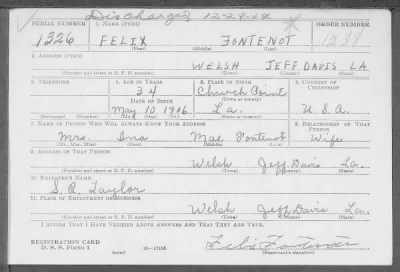 Discharged 12-28-49
SERIAL NUMBER 1. NAME (Print) ORDER NUMBER
1326 FELIX FONTENOT
(First) (Middle) (Last)
2. ADDRESS (Print)
WELSH JEFF DAVIS LA
(Number and street or R. F. D. number) (Town) (County) (State)
3. TELEPHONE 4. AGE IN YEARS 5. PLACE OF BIRTH 6. COUNTRY OF CITIZENSHIP
34 Church Point
DATE OF BIRTH (Town or county)
May 10 1906 La. U.S.A.
(Mo.) (Day) (Yr.) (State or country)
7. NAME OF PERSON WHO WILL ALWAYS KNOW YOUR ADDRESS 8. RELATIONSHIP OF THAT PERSON
Mrs. Ina Mae Fontenot Wife
(Mr., Mrs., Miss) (First) (Middle) (Last)
9. ADDRESS OF THAT PERSON
Welsh Jeff Davis La.
(Number and street or R. F. D. number) (Town) (County) (State)
10. EMPLOYER'S NAME
S. R. Taylor
11. PLACE OF EMPLOYMENT OR BUSINESS
Welsh Jeff Davis La.
(Number and street or R. F. D. number) (Town) (County) (State)
I AFFIRM THAT I HAVE VERIFIED ABOVE ANSWERS AND THAT THEY ARE TRUE.
REGISTRATION CARD
D. S. S. Form 1 (over) 16-17105 Felix Fontenot
(Registrant's signature)